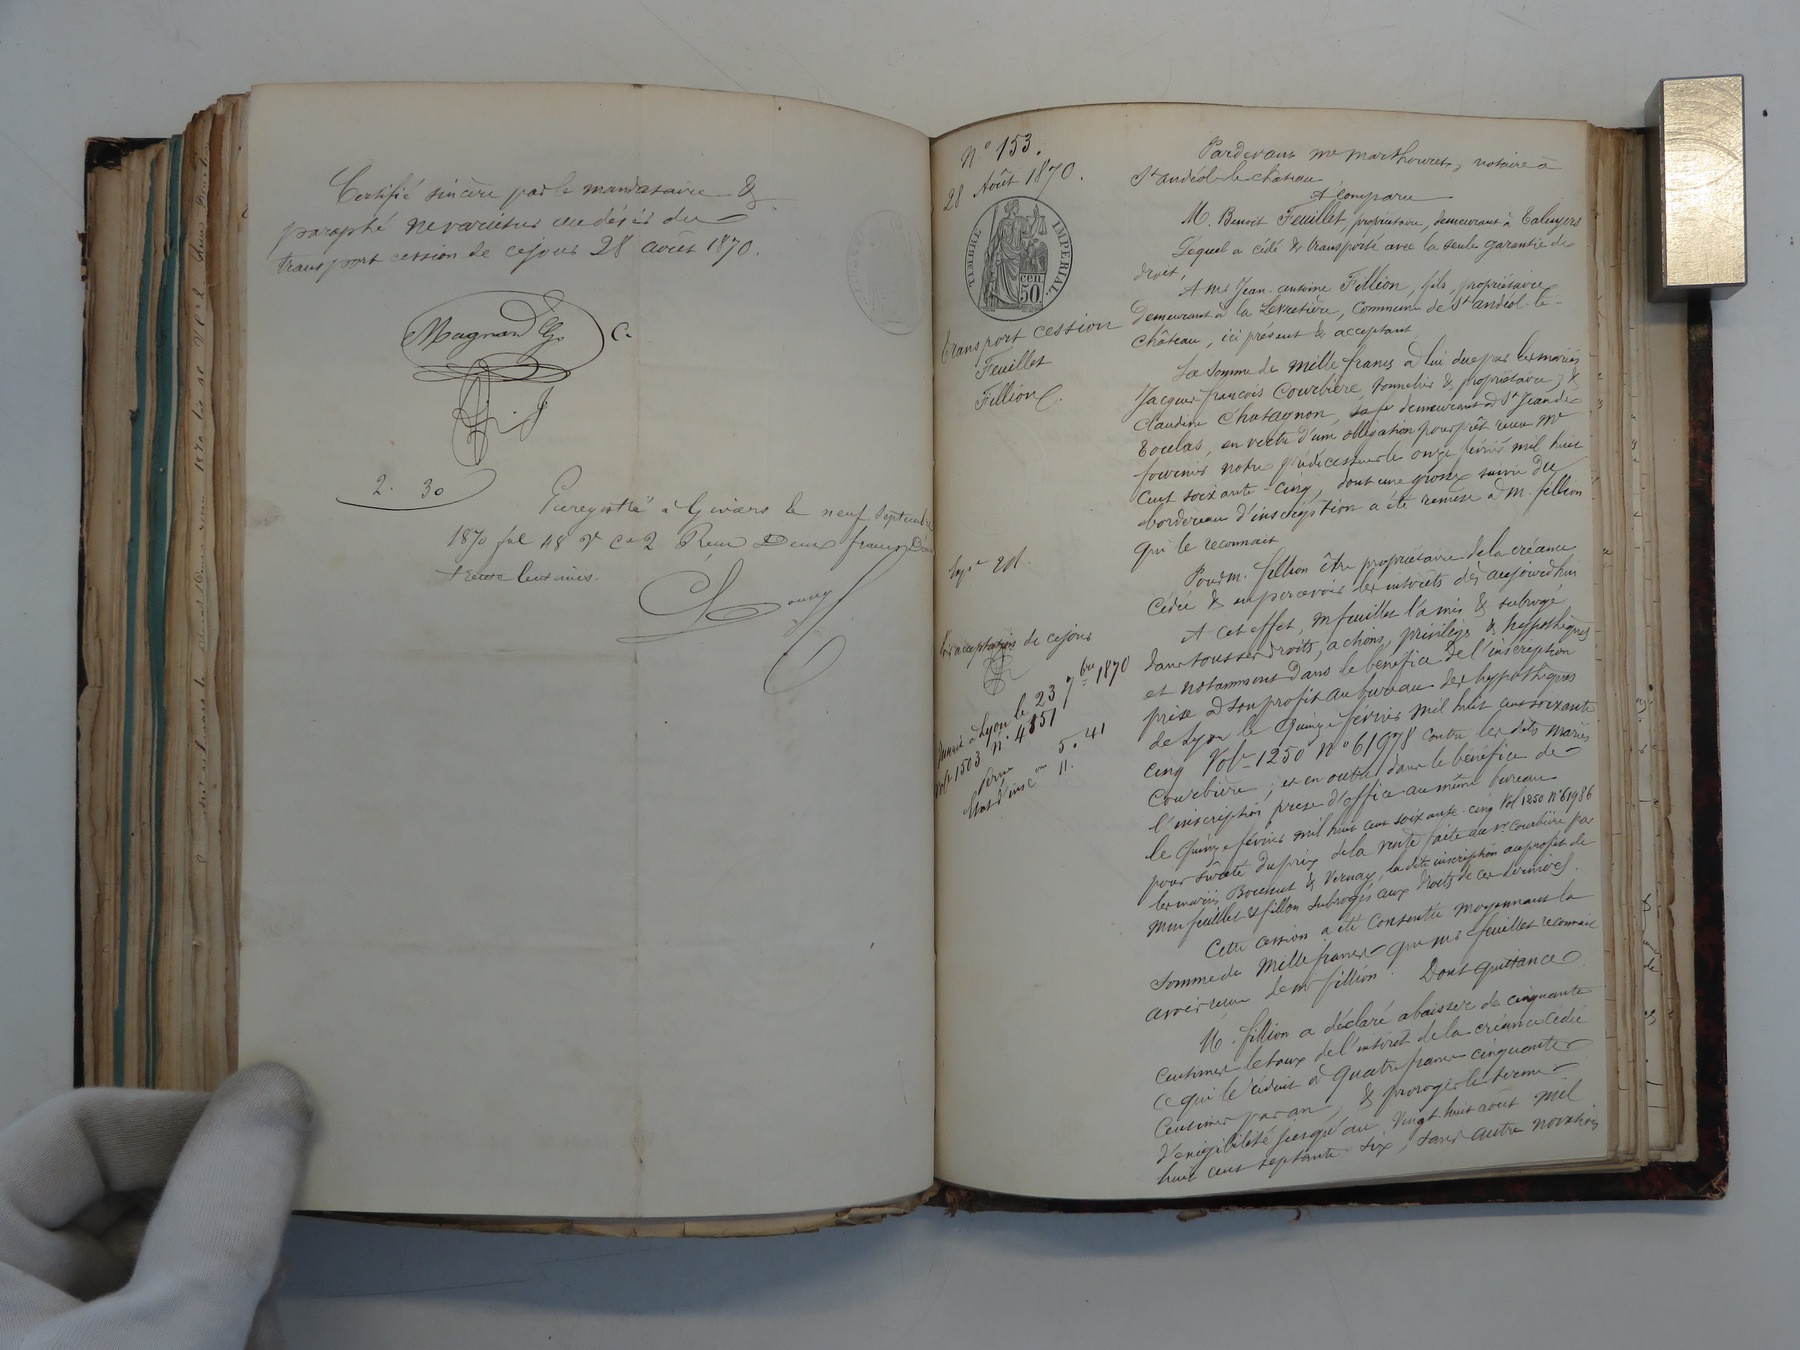 Certifié sincère par le mandataire &
paraphé ne varietur au désir du
transport cession de ce jour 28 août 1870.
Magnand
2. 30
Enregistré à Givors le neuf Septembre
1870 fol 48 Vo Ce 2 Reçu Deux francs
trente centimes.
No 153.
28 Août 1870.
TIMBRE IMPERIAL.
50 cen
Transport cession
Feuillet
Fillion
acceptation de ce jour
à Lyon le 23 7bre 1870
Vol. 1503 no 4851
5. 41
11.
Pardevant Me Marthouret, notaire à
St andéol-le-château
A Comparu
M. Benoit Feuillet, propriétaire, demeurant à Taluyers
Lequel a cédé & transporté avec la seule garantie de
droit,
A Mr Jean-antoine Fillion, fils, propriétaire
demeurant à la , Commune de St andéol-le-
château, ici présent & acceptant
La Somme de Mille francs à lui due par les mariés
Jacques françois Courbière, tonnelier & propriétaire, &
Claudine Chatagnon, sa fe demeurant à St Jean de
Toulas, en vertu d'une obligation pour prêt reçue Me
notre prédécesseur le onze février mil huit
cent soixante-cinq, dont une grosse suivie du
bordereau d'inscription a été remise à M. fillion
qui le reconnait
Pour M. fillion être propriétaire de la créance
cédée & en percevoir les intérêts dès aujourd'hui
A cet effet, M feuillet l'a mis & subrogé
dans tous ses droits, actions, privilèges & hypothèques
et notamment dans le bénéfice de l'inscription
prise, à son profit au bureau des hypothèques
de Lyon le Quinze février mil huit cent soixante
cinq Vol. 1250 No 61978 contre les dits mariés
Courbière; et en outre dans le bénéfice de
l'inscription prise d'office au même bureau
le Quinze février mil huit cent soixante-cinq Vol 1250 No 61986
pour sûreté du prix de la vente faite au Sr Courbière par
les mariés & Vernay, la dite inscription au profit de
Mrs feuillet & fillon subrogés aux droits de ces derniers.
Cette cession a été consentie moyennant la
somme de Mille francs que Mr feuillet reconnait
avoir reçue de Mr fillion. Dont quittance
M. fillion a déclaré abaisser de cinquante
centimes le taux de l'intérêt de la créance cédée
ce qui le réduit à Quatre francs cinquante
centimes par an, & proroger le terme
d'exigibilité jusqu'au Vingt huit août Mil
huit cent septante-six, sans autre novation